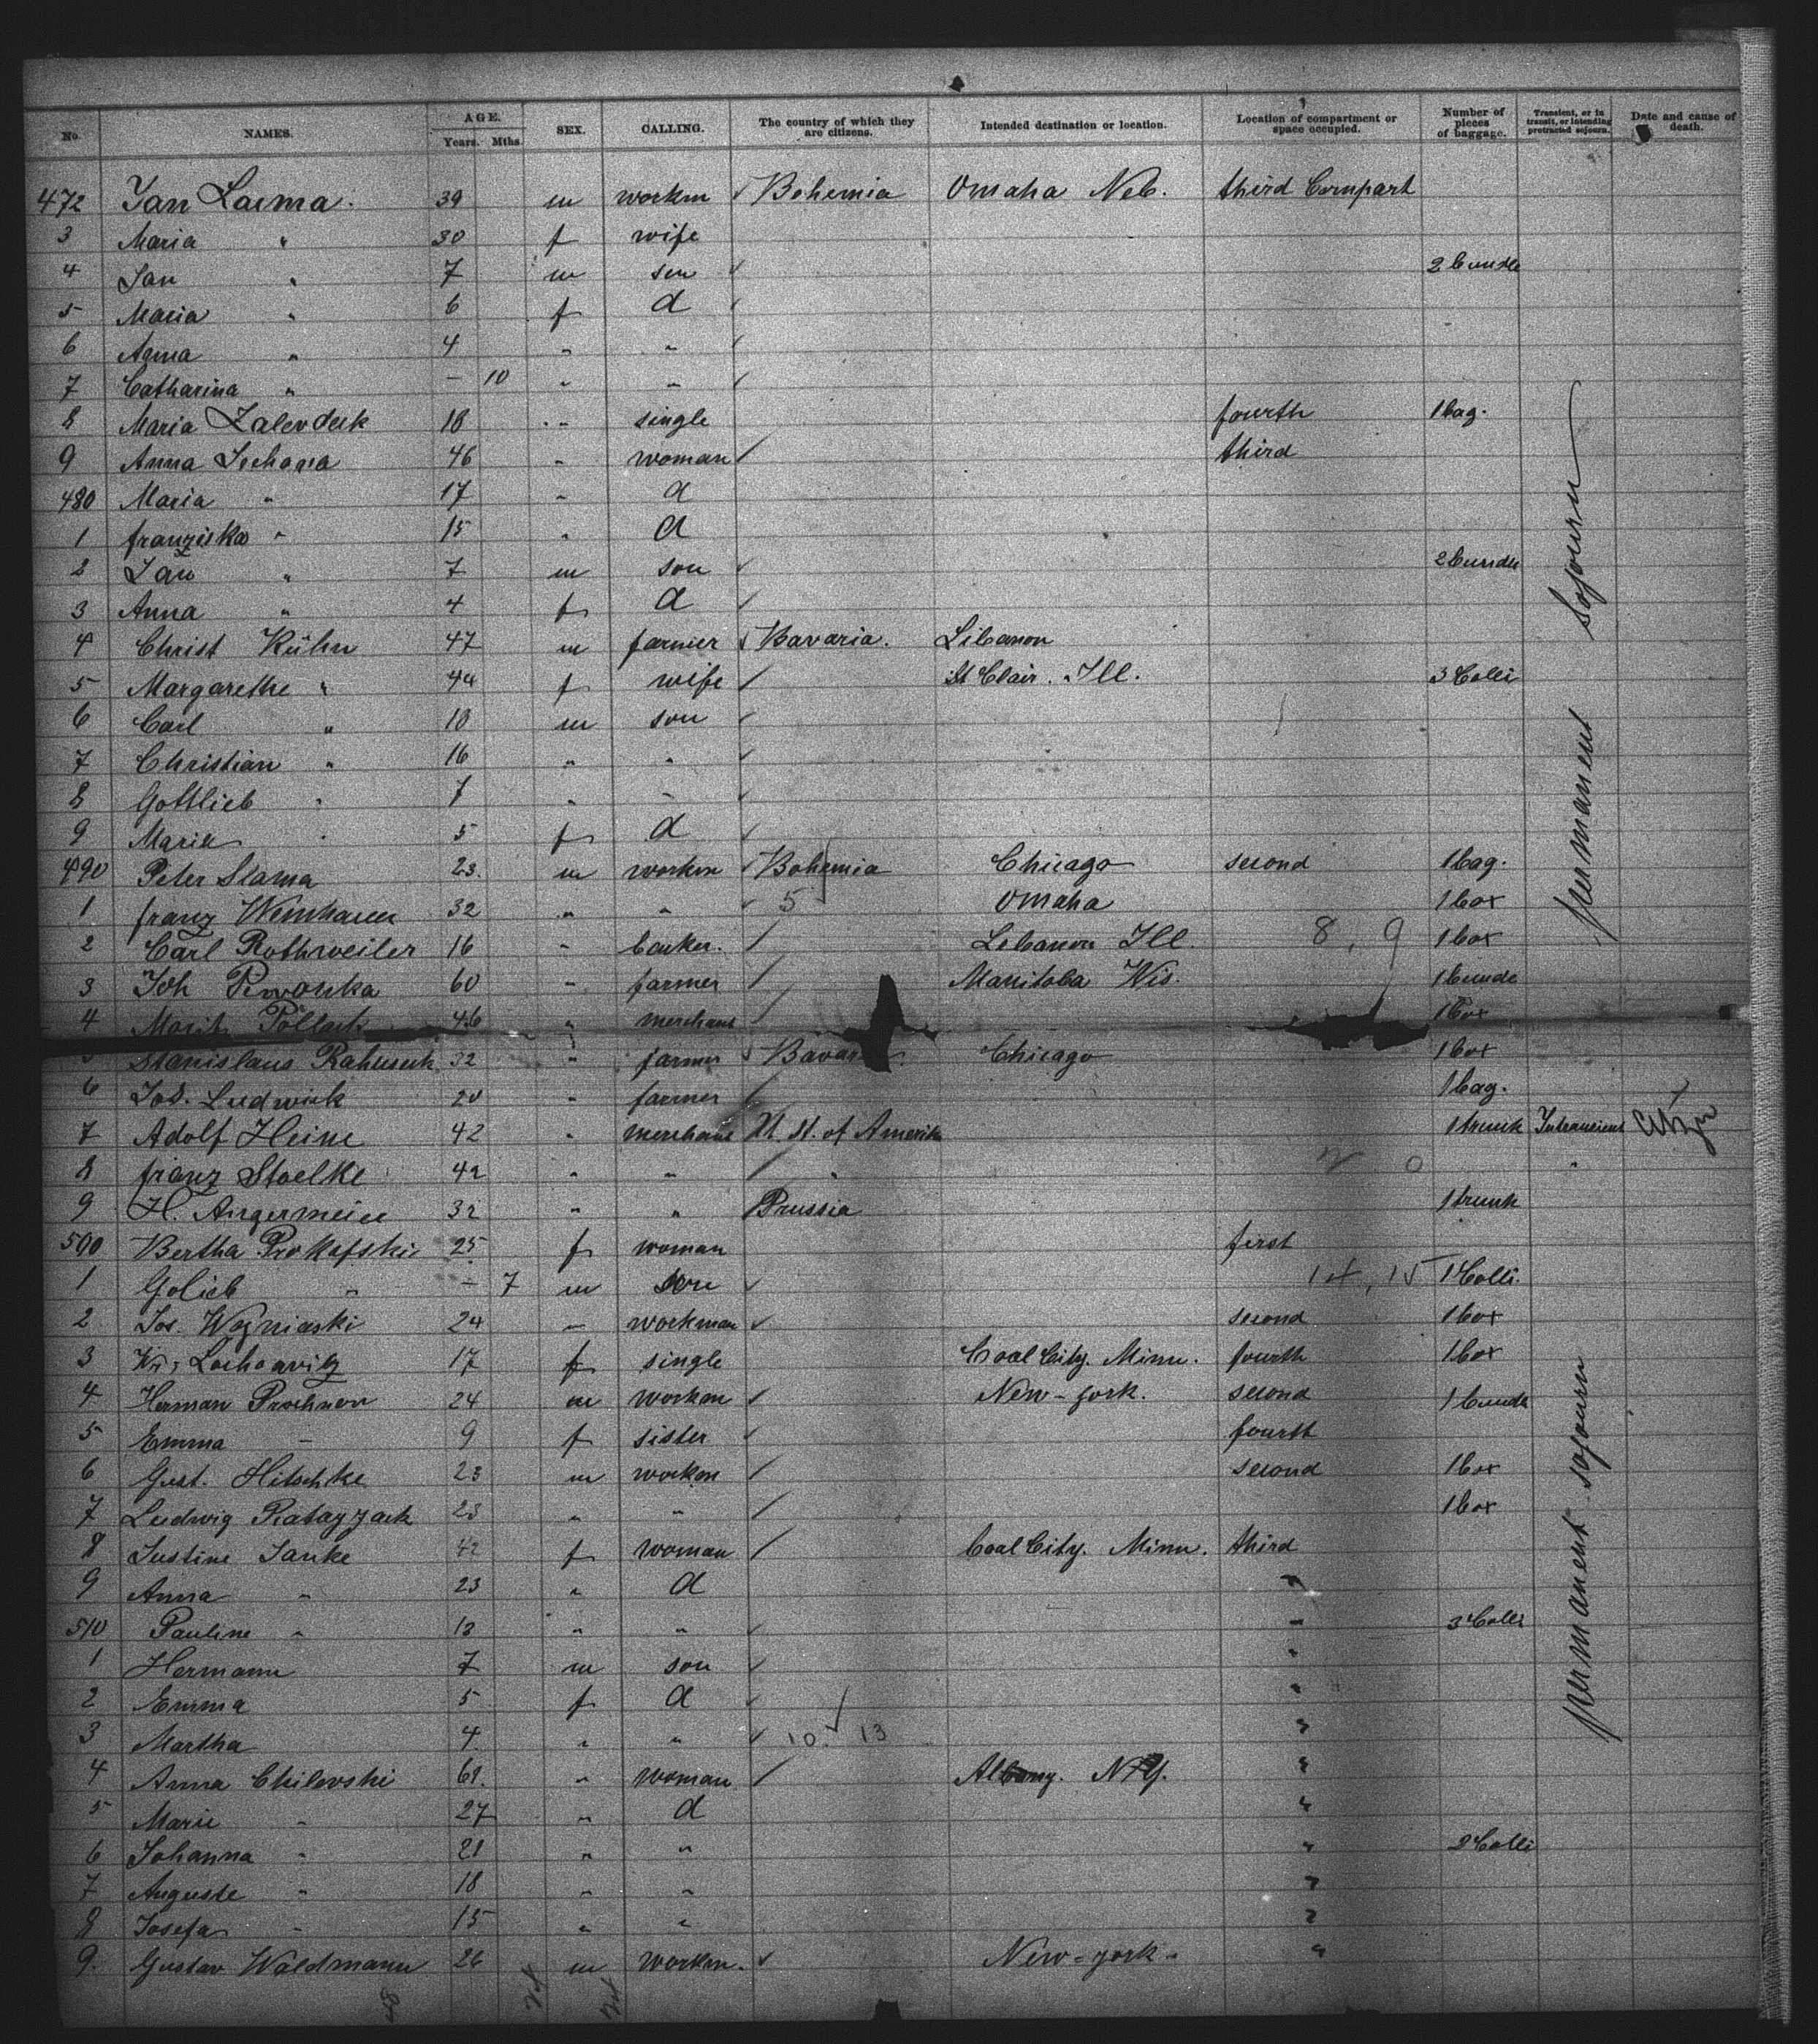 No. NAMES. AGE. Years. Mths. SEX. CALLING. The country of which they are citizens. Intended destination or location. Location of compartment or space occupied. Number of pieces of baggage. Transient, or in transit, or intending protracted sojourn. Date and cause of death.
472 Jan 39 m workm Bohemia Omaha Neb. third Compart
3 Maria " 30 f wife
4 Jan " 7 m son 2 bundle
5 Maria " 6 f d
6 Anna " 4 " "
7 Catharina " - 10 " "
8 Maria 18 " single fourth 1 bag.
9 Anna 46 " woman third
480 Maria " 17 " d
1 franziska " 15 " d
2 Jan " 7 m son 2 bundle
3 Anna " 4 f d
4 Christ Kühn 47 m farmer Bavaria. Libanon
5 Margarethe " 44 f wife St Clair. Ill. 3 Colli
6 Carl " 18 m son
7 Christian " 16 " "
8 Gottlieb " 7 " "
9 Marie " 5 f d
490 Peter Slama 23. m workm Bohemia Chicago second 1 bag.
1 franz 32 " " 5 Omaha 1 box
2 Carl Rothweiler 16 " Lebanon Ill. 8, 9 1 box
3 Joh Piwonka 60 " farmer Manitoba Wis. 1 bunde
4 Pollack 46 " merchant 1 box
Stanislaus 32 " farmer Chicago 1 box
6 Jos. Ludwick 20 " farmer 1 bag.
7 Adolf Heine 42 " merchant U. St. of Amerika 1 trunk
8 franz Stoelke 42 " " " "
9 H. Angermeier 32 " " Prussia 1 trunk
500 Bertha Prokofski 25 f woman first
1 Golieb " - 7 m son 14, 15 1 Colli.
2 Jos. Wozniaski 24 - workman second 1 box
3 17 f single Coal City. Minn. fourth 1 box
4 Herman Prochnow 24 m workm New-york. second 1 bunde
5 Emma - 9 f sister fourth
6 Gust. Hitschke 23 m workm second 1 box
7 Ludwig Ratayzack 23 " " 1 box
8 Justine Janke 42 f woman Coal City. Minn. third
9 Anna " 23 " d "
510 Pauline " 13 " " " 3 Colli
1 Hermann 7 m son "
2 Emma 5 f d "
3 Martha 4. " " 10. 13 "
4 Anna Chilevski 61. " woman Albany. N.Y. "
5 Marie " 27 " d "
6 Johanna " 21 " " " 2 Colli
7 Auguste " 18 " " "
8 Josefa " 15 " " "
9. Gustav Waldmann 26 m workm. New-york "
permanent Sojourn
permanent sojourn